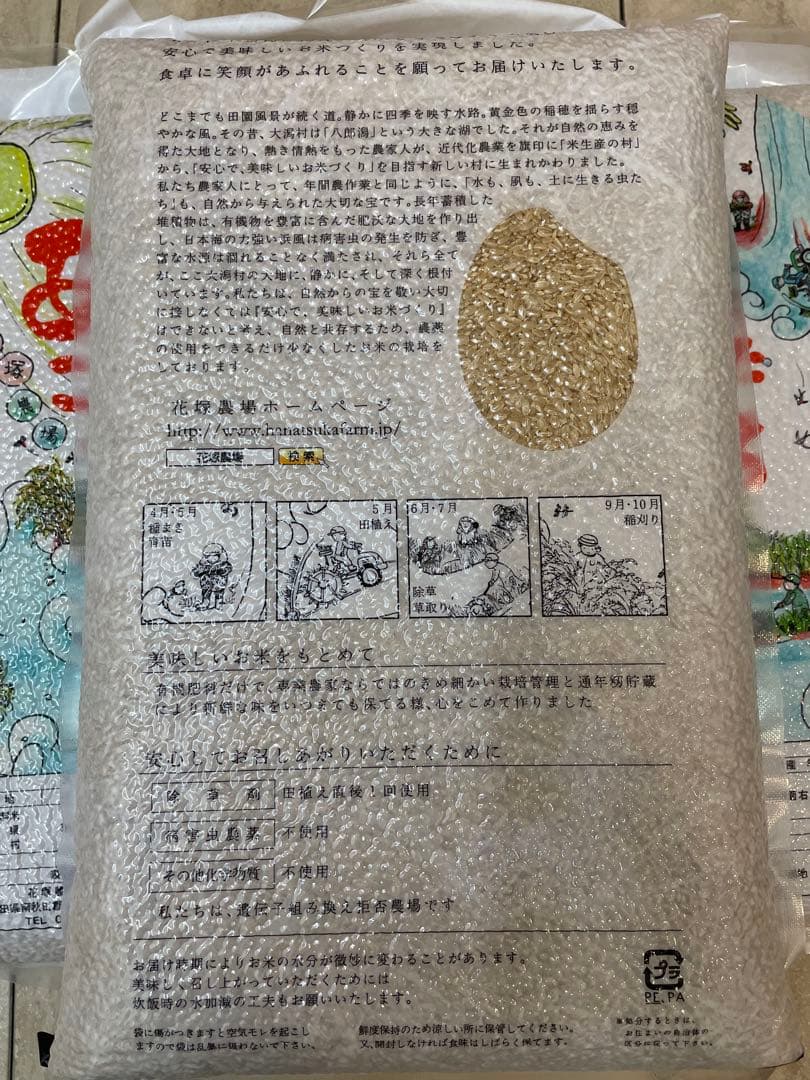 安心で美味しいお米づくりを実現しました。
食卓に笑顔があふれることを願ってお届けいたします。
どこまでも田園風景が続く道。静かに四季を映す水路。黄金色の稲穂を揺らす穏
やかな風。その昔、大潟村は「八郎潟」という大きな湖でした。それが自然の恵みを
得た大地となり、熱き情熱をもった農家人が、近代化農業を旗印に「米生産の村」
から、「安心で、美味しいお米づくり」を目指す新しい村に生まれかわりました。
私たち農家人にとって、年間農作業と同じように、「水も、風も、土に生きる虫た
ち」も、自然から与えられた大切な宝です。長年蓄積した
堆積物は、有機物を豊富に含んだ肥沃な大地を作り出
し、日本海の力強い浜風は病害虫の発生を防ぎ、豊
富な水源は涸れることなく満たされ、それら全て
が、ここ大潟村の大地に、静かに、そして深く根付
いています。私たちは、自然からの宝を敬い大切
に接しなくては『安心で、美味しいお米づくり』
はできないと考え、自然と共存するため、農薬
の使用をできるだけ少なくしたお米の栽培を
しております。
花塚農場ホームページ
http://www.hanatsukafarm.jp/
花塚農場 検索
4月・5月
種まき
育苗
5月
田植え
6月・7月
除草
草取り
9月・10月
稲刈り
美味しいお米をもとめて
有機肥料だけで、専業農家ならではのきめ細かい栽培管理と通年籾貯蔵
により新鮮な味をいつまでも保てる様、心をこめて作りました
安心してお召しあがりいただくために
除草剤 田植え直後1回使用
病害虫農薬 不使用
その他化学物質 不使用
私たちは、遺伝子組み換え拒否農場です
お届け時期によりお米の水分が微妙に変わることがあります。
美味しく召し上がっていただくためには
炊飯時の水加減の工夫もお願いいたします。
プラ
PE,PA
袋に傷がつきますと空気モレを起こし
ますので袋は乱暴に扱わないで下さい。
鮮度保持のため涼しい所に保管してください。
又、開封しなければ食味はしばらく保てます。
※処分するときは、
お住まいの自治体の
区分に従って下さい。
塚
農
場
TEL